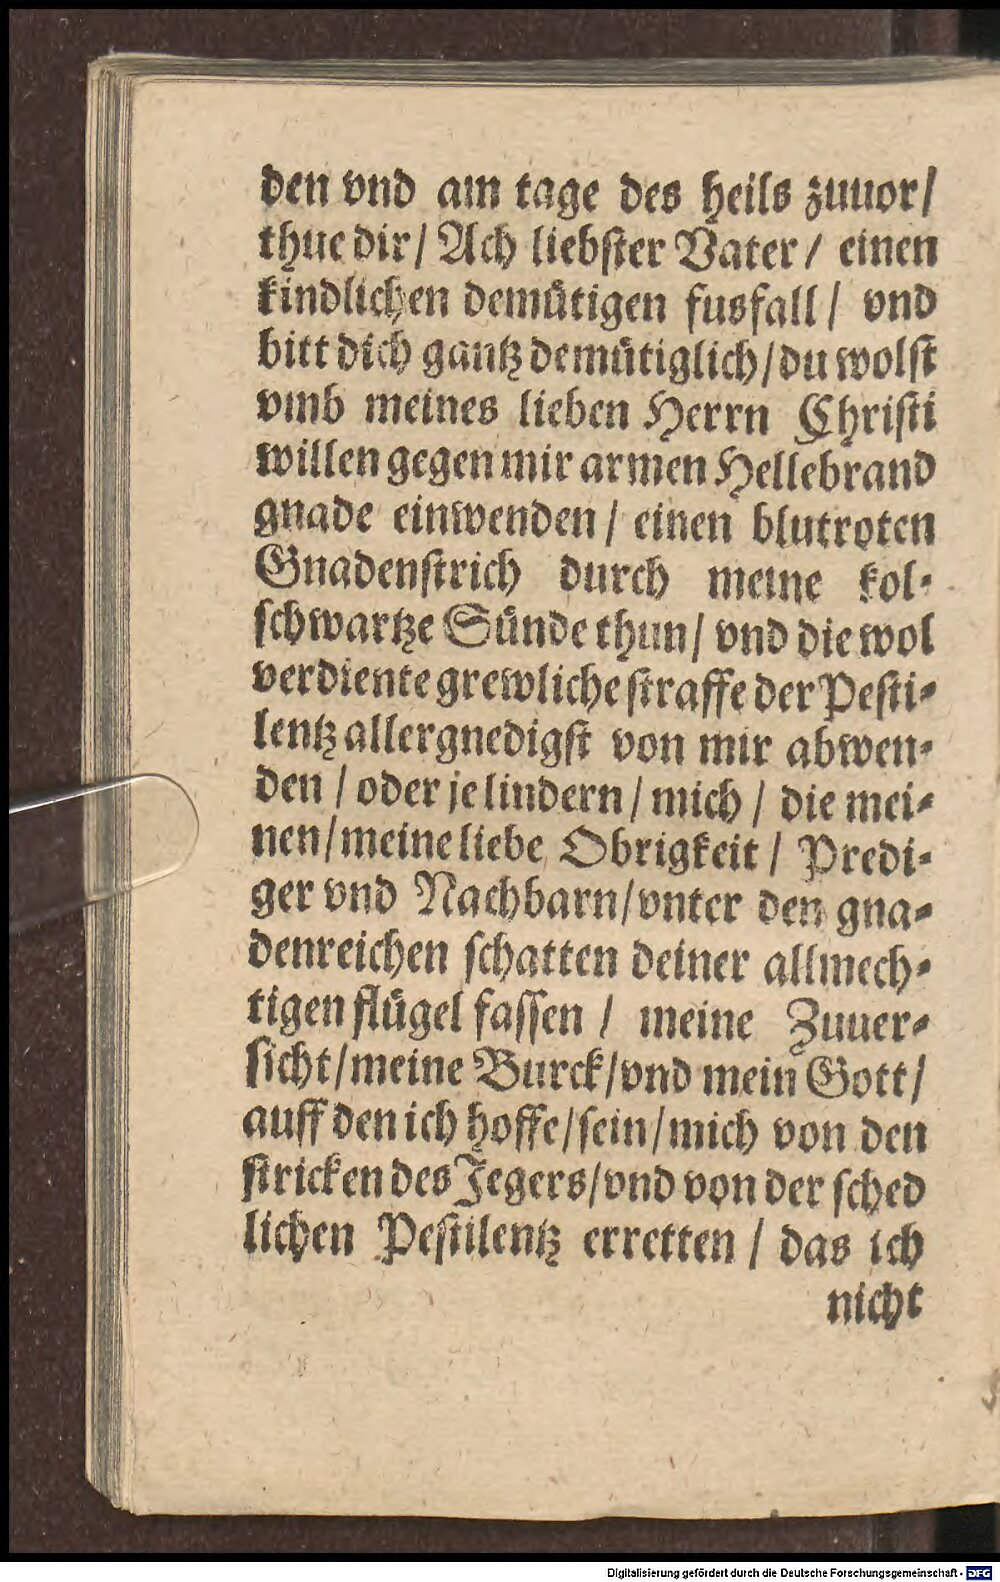 den vnd am tage des heils zuuor/
thue dir/ Ach liebſter Vater/ einen
kindlichen demuͤtigen fusfall/ vnd
bitt dich gantz demuͤtiglich/du wolſt
vmb meines lieben Herrn Chriſti
willen gegen mir armen Hellebrand
gnade einwenden/ einen blutroten
Gnadenſtrich durch meine kol⸗
ſchwartze Suͤnde thun/ vnd die wol
verdiente grewliche ſtraffe der Peſti⸗
lentz allergnedigſt von mir abwen⸗
den / oder je lindern / mich / die mei⸗
nen/meine liebe Obrigkeit / Predi⸗
ger vnd Nachbarn/vnter den gna⸗
denreichen ſchatten deiner allmech⸗
tigen fluͤgel faſſen / meine Zuuer⸗
ſicht/meine Burck/vnd mein Gott/
auff den ich hoffe/ſein/mich von den
ſtricken des Jegers/vnd von der ſched
lichen Peſtilentz erretten / das ich
nicht
Digitalisierung gefördert durch die Deutsche Forschungsgemeinschaft - DFG